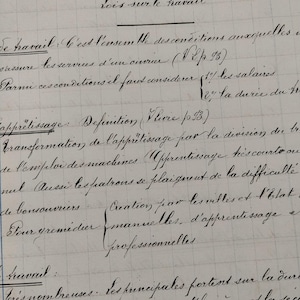 Lois sur le travail
de travail, C'est l'ensemble des conditions auxquelles
mesure les services d'un ouvrier (
Parmi ces conditions il faut considérer { 1° les salaires
2° la durée du
l'apprêtissage. Définition, (livre p 23)
Transformation de l'apprêtissage par la division du
de l'emploi des machines (Apprentissage très court ou
nul Aussi les patrons se plaignent de la difficulté
de bons ouvriers
Pour y remédier { Création par les villes et l'Etat
manuelles, d'apprentissage
professionnelles
travail :
très nombreuses. Les principales portent sur la